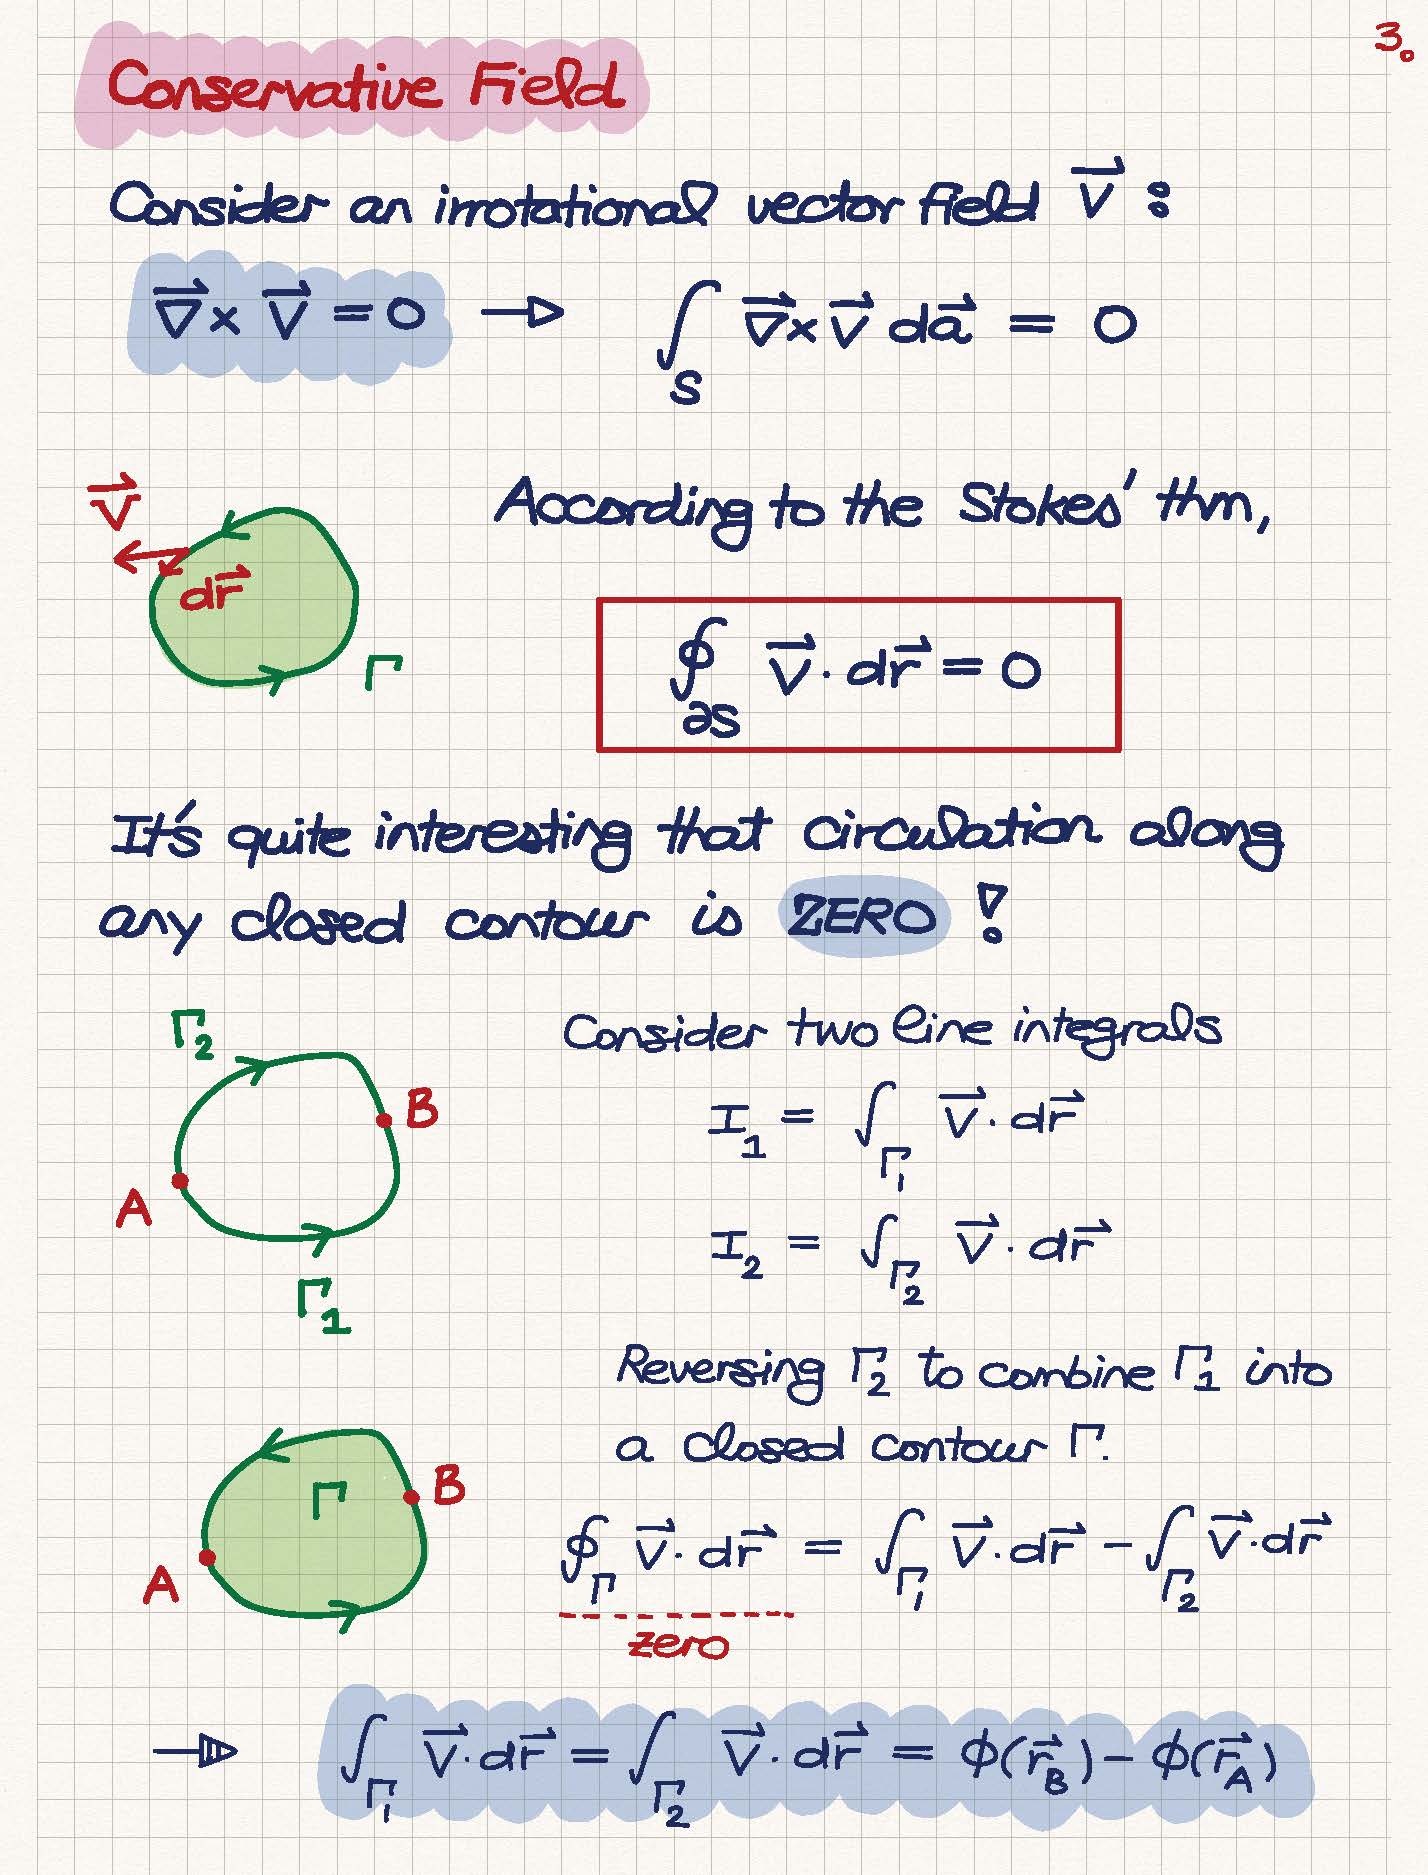 3.
Conservative Field
Consider an irrotational vector field V⃗ :
∇⃗ × V⃗ = 0 → ∫_S ∇⃗ × V⃗ da⃗ = 0
V⃗
dr⃗
Γ
According to the Stokes' thm,
∮_∂S V⃗ · dr⃗ = 0
It's quite interesting that circulation along
any closed contour is ZERO !
Γ₂
B
A
Γ₁
Consider two line integrals
I₁ = ∫_Γ₁ V⃗ · dr⃗
I₂ = ∫_Γ₂ V⃗ · dr⃗
Reversing Γ₂ to combine Γ₁ into
a closed contour Γ.
Γ
B
A
∮_Γ V⃗ · dr⃗ = ∫_Γ₁ V⃗ · dr⃗ − ∫_Γ₂ V⃗ · dr⃗
zero
→ ∫_Γ₁ V⃗ · dr⃗ = ∫_Γ₂ V⃗ · dr⃗ = ϕ(r⃗_B) − ϕ(r⃗_A)